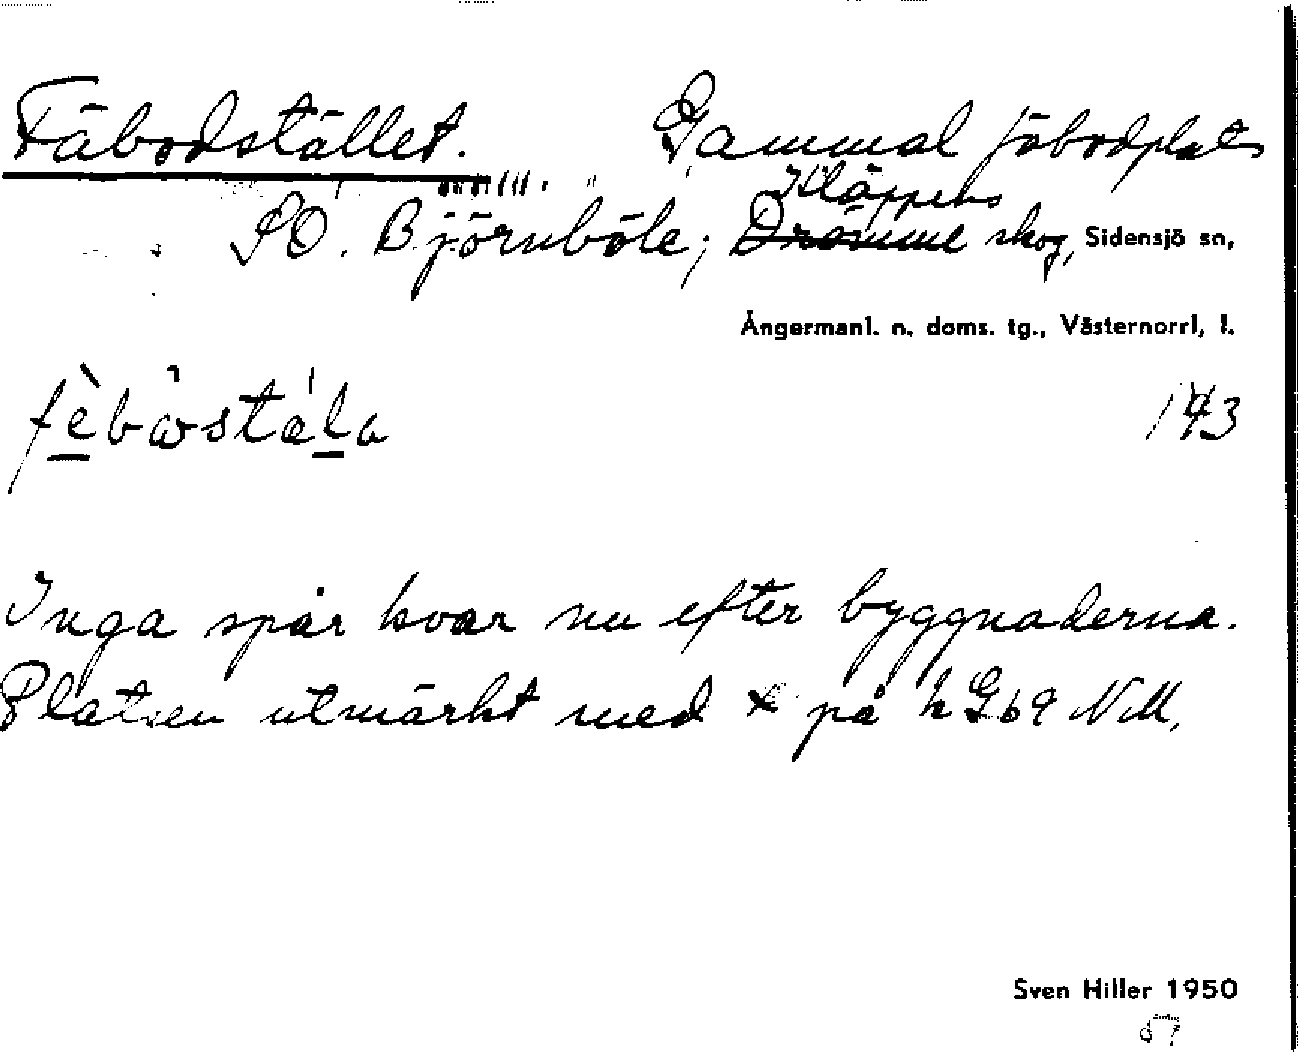 Fäbodstället. Gammal fäbodplats
Kläppens
SO. Björnböle; Drömme skog, Sidensjö sn,
Ångermanl. n. doms. tg., Västernorrl. l.
fèbåståla
143
Inga spår kvar nu efter byggnaderna.
Platsen utmärkt med x på h G69 NM.
Sven Hiller 1950